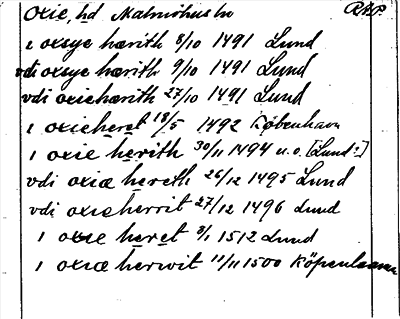 Oxie, hd Malmöhus ln RAP.
i oxsye hærith 8/10 1491 Lund
vdi oxsye hærith 9/10 1491 Lund
vdi oxiehærith 27/10 1491 Lund
i oxieheret 18/5 1492 København
i oxie herith 30/11 1494 u.o. [Lund?]
vdi oxiæ hereth 26/12 1495 Lund
vdi oxieherrit 27/12 1496 Lund
i oxie heret 3/1 1512 Lund
i oxiæ herwit 11/11 1500 Köpenhamn